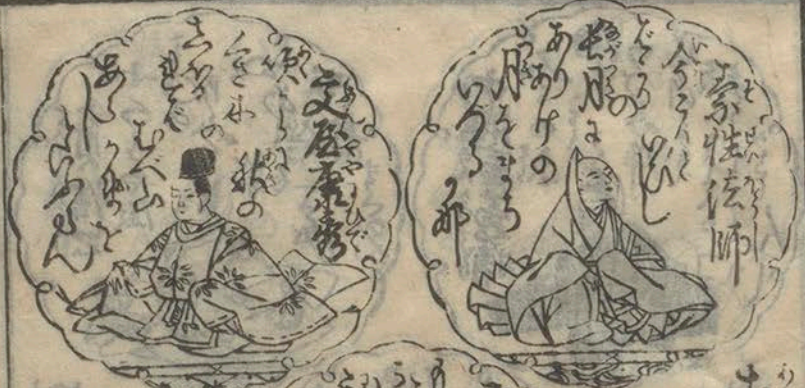 素性法師
今こんと
いひし
ばかりに
長月の
ありあけの
月をまち
いづる哉
文屋康秀
ふんやのやすひで
吹からに
秋の
くさ木の
しほ
るれば
むべ山
かぜを
あらし
といふらん